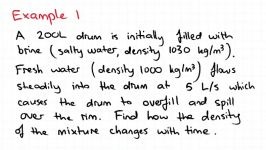 Example 1
A 200L drum is initially filled with
brine (salty water, density 1030 kg/m³).
Fresh water (density 1000 kg/m³) flows
steadily into the drum at 5 L/s which
causes the drum to overfill and spill
over the rim. Find how the density
of the mixture changes with time.